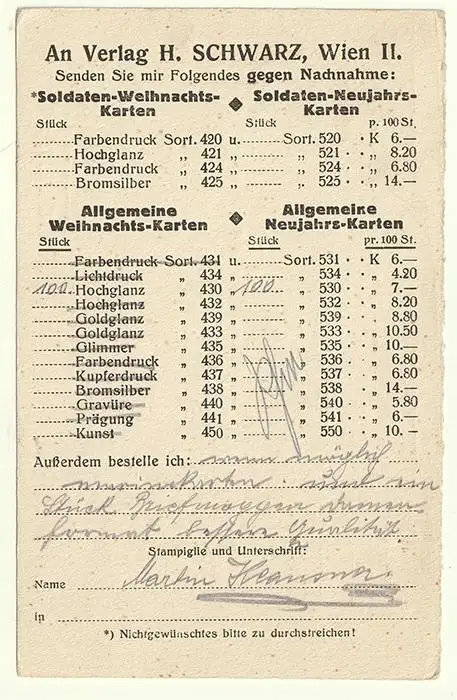 An Verlag H. SCHWARZ, Wien II.
Senden Sie mir Folgendes gegen Nachnahme:
*Soldaten-Weihnachts-Karten ◆ Soldaten-Neujahrs-Karten
Stück Stück p. 100 St.
Farbendruck Sort. 420 u. Sort. 520 · K 6.—
Hochglanz „ 421 „ „ 521 · · „ 8.20
Farbendruck „ 424 „ „ 524 · · „ 6.80
Bromsilber „ 425 „ „ 525 · · „ 14.—
Allgemeine Weihnachts-Karten ◆ Allgemeine Neujahrs-Karten
Stück Stück pr. 100 St.
Farbendruck Sort. 431 u. Sort. 531 · K 6.—
Lichtdruck „ 434 „ „ 534 · · „ 4.20
100 Hochglanz „ 430 „ 100 „ 530 · · „ 7.—
Hochglanz „ 432 „ „ 532 · · „ 8.20
Goldglanz „ 439 „ „ 539 · · „ 8.80
Goldglanz „ 433 „ „ 533 · · „ 10.50
Glimmer „ 435 „ „ 535 · · „ 10.—
Farbendruck „ 436 „ „ 536 · · „ 6.80
Kupferdruck „ 437 „ „ 537 · · „ 6.80
Bromsilber „ 438 „ „ 538 · · „ 14.—
Gravüre „ 440 „ „ 540 · · „ 5.80
Prägung „ 441 „ „ 541 · · „ 6.—
Kunst „ 450 „ „ 550 · · „ 10.—
Außerdem bestelle ich: wenn möglich
marinekarten. und ein
Stück Briefmappen damen
format bessere Qualität.
Stampiglie und Unterschrift:
Name Martin
in
*) Nichtgewünschtes bitte zu durchstreichen!